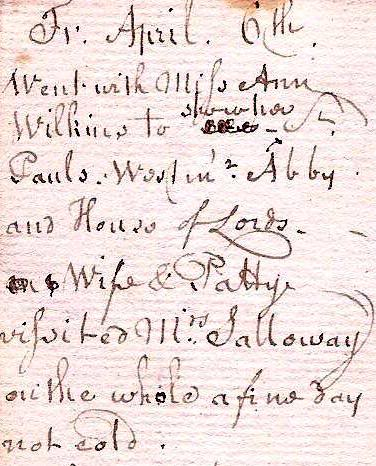 Fr. April. 6th.
Went with Miss Ann
Wilkins to show her St.
Pauls. Westmr. Abby.
and House of Lords.
my Wife & Patty
vissited Mrs. Galloway
on the whole a fine day
not cold.